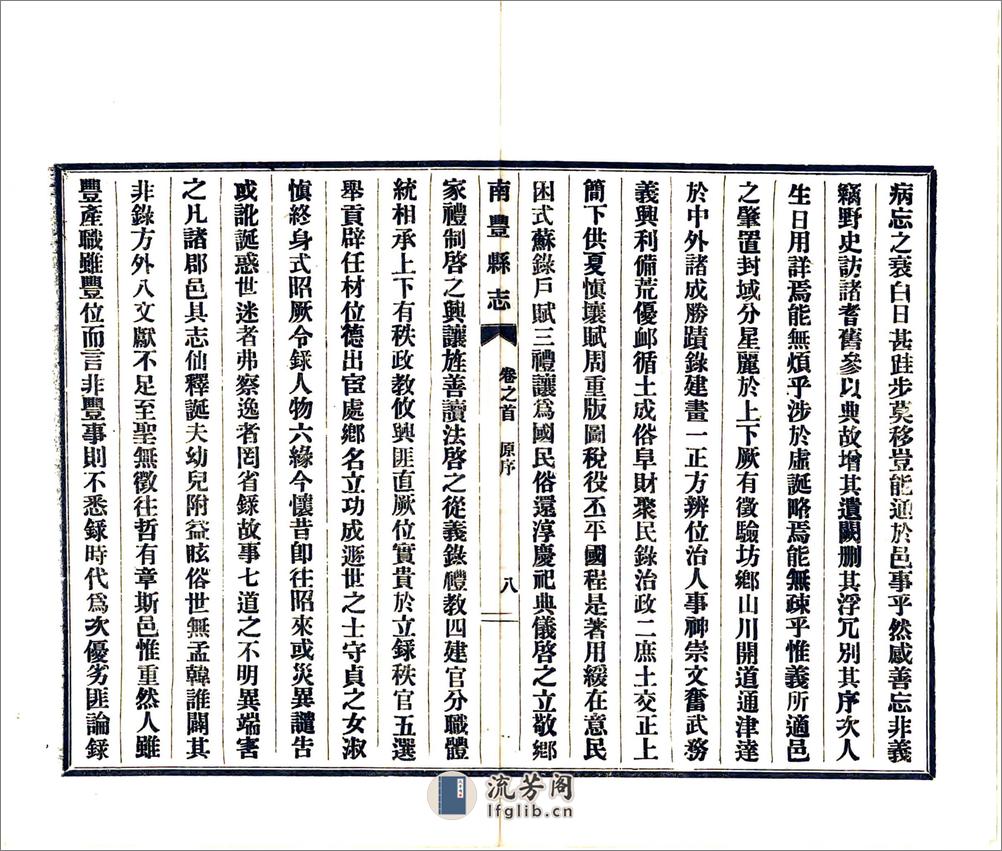 病忘之衰白日甚跬步莫移豈能通於邑事乎然感善忘非義
竊野史訪諸耆舊參以典故增其遺闕删其浮冗別其序次人
生日用詳焉能無煩乎涉於虛誕略焉能無疎乎惟義所適邑
之肇置封域分星麗於上下厥有徵驗坊鄉山川開道通津達
於中外諸成勝蹟錄建畫一正方辨位治人事神崇文奮武務
義興利備荒優䘏循土成俗阜財聚民錄治政二庶土交正上
簡下供夏慎壤賦周重版圖稅役丕平國程是著用緩在意民
困式蘇錄戶賦三禮讓爲國民俗還淳慶祀典儀啓之立敬鄉
南豐縣志
卷之首 原序
八
家禮制啓之興讓旌善讀法啓之從義錄禮教四建官分職體
統相承上下有秩政教攸興匪直厥位實貴於立錄秩官五選
舉貢辟任材位德出宦處鄉名立功成遯世之士守貞之女淑
慎終身式昭厥令錄人物六緣今懷昔卽往昭來或災異譴告
或訛誕惑世迷者弗察逸者罔省錄故事七道之不明異端害
之凡諸郡邑具志仙釋誕夫幼兒附益眩俗世無孟韓誰闢其
非錄方外八文獻不足至聖無徵往哲有章斯邑惟重然人雖
豐產職雖豐位而言非豐事則不悉錄時代爲次優劣匪論錄
流芳阁
lfglib.cn